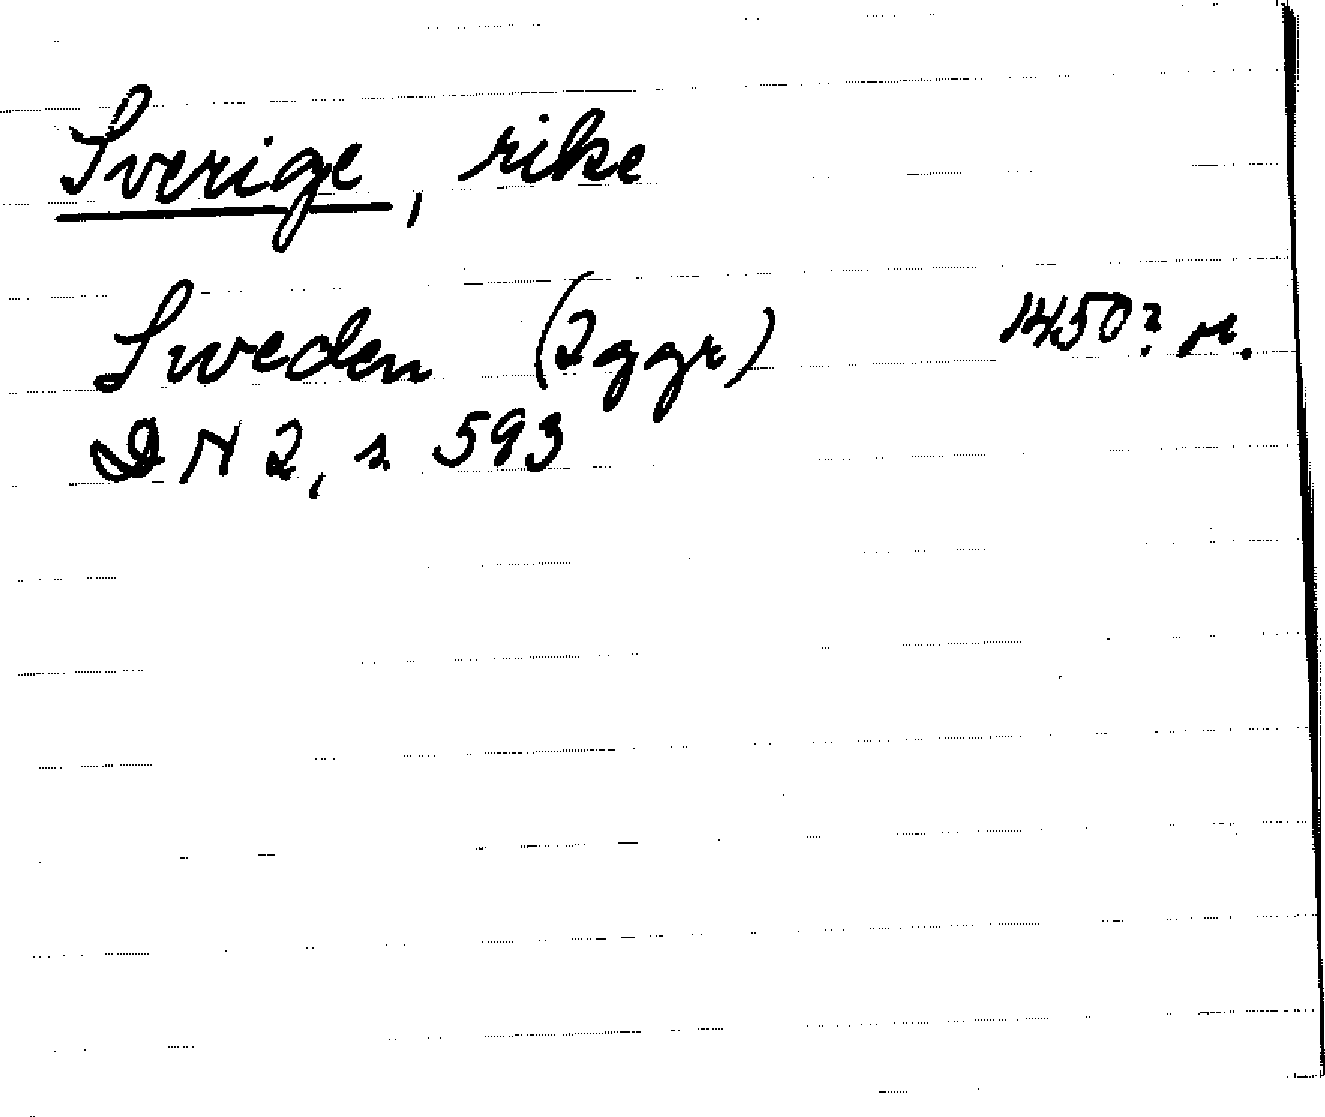 Sverige, rike
Sweden (2 ggr) 1450? or.
DN 2, s 593